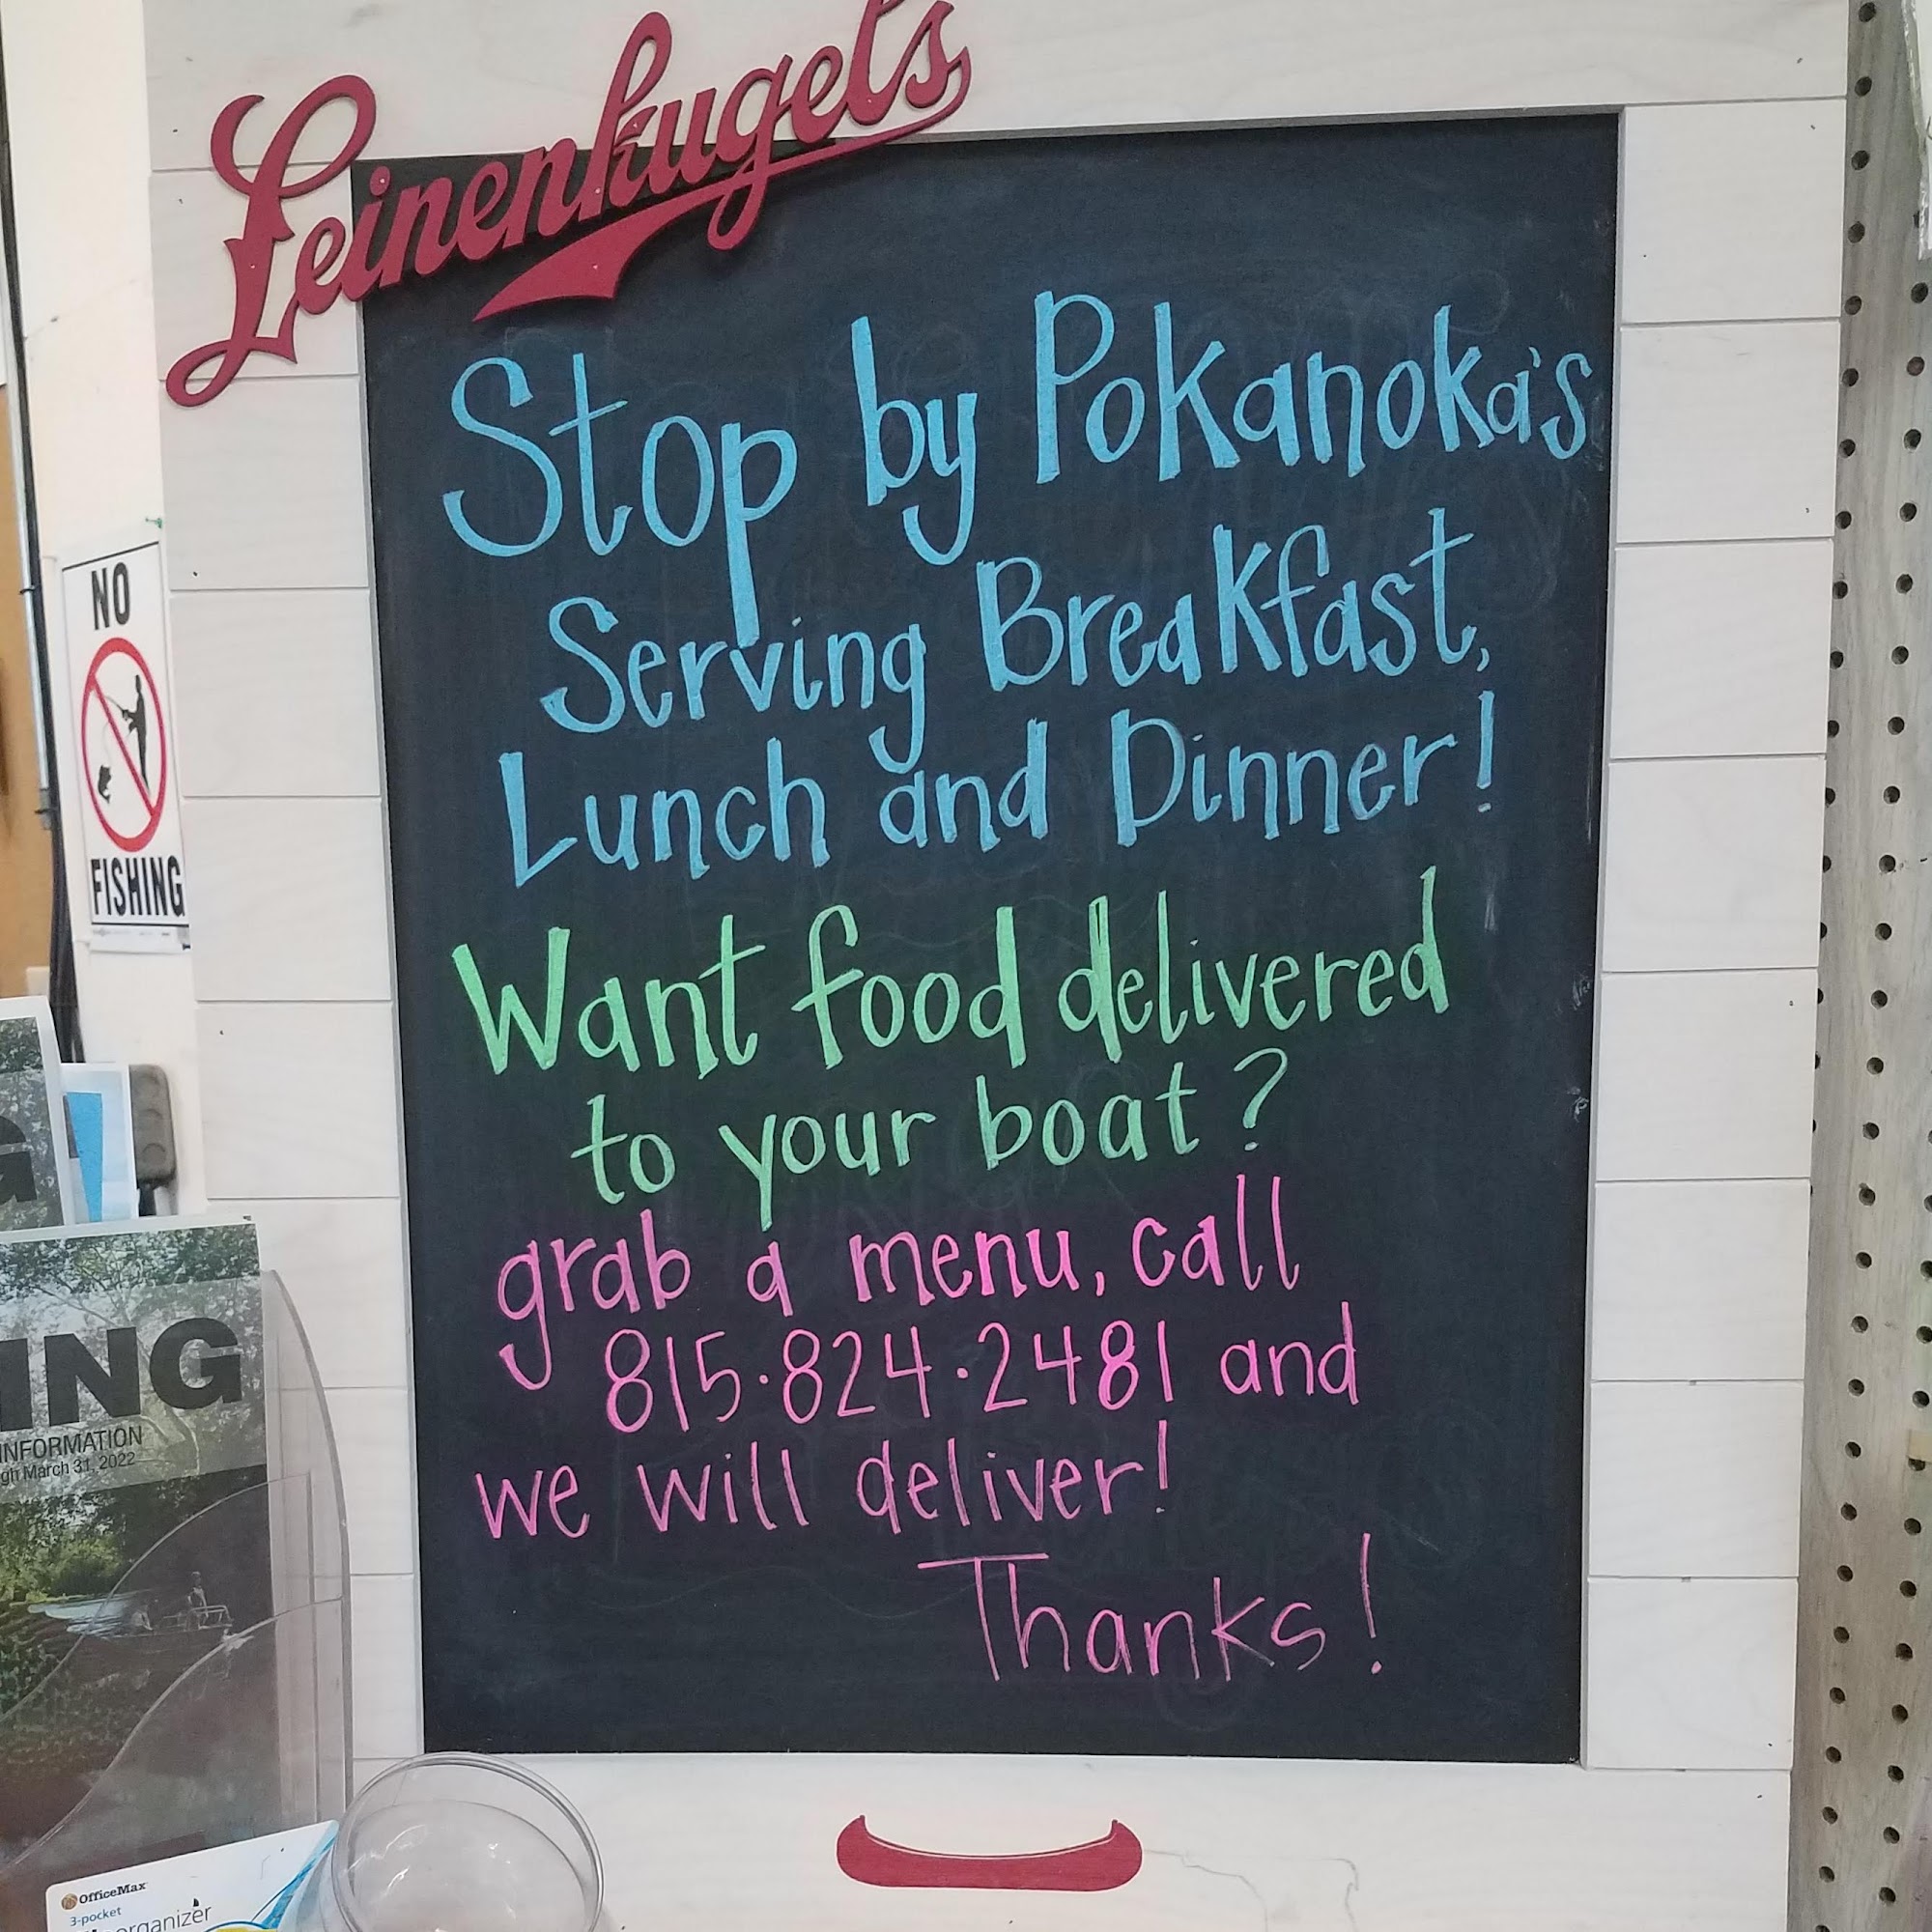 Leinenkugel's
Stop by Pokanoka's
Serving Breakfast,
Lunch and Dinner!
Want food delivered
to your boat?
grab a menu, call
815·824·2481 and
we will deliver!
Thanks!
NO
FISHING
G
ING
INFORMATION
gh March 31, 2022
OfficeMax
3-pocket
organizer